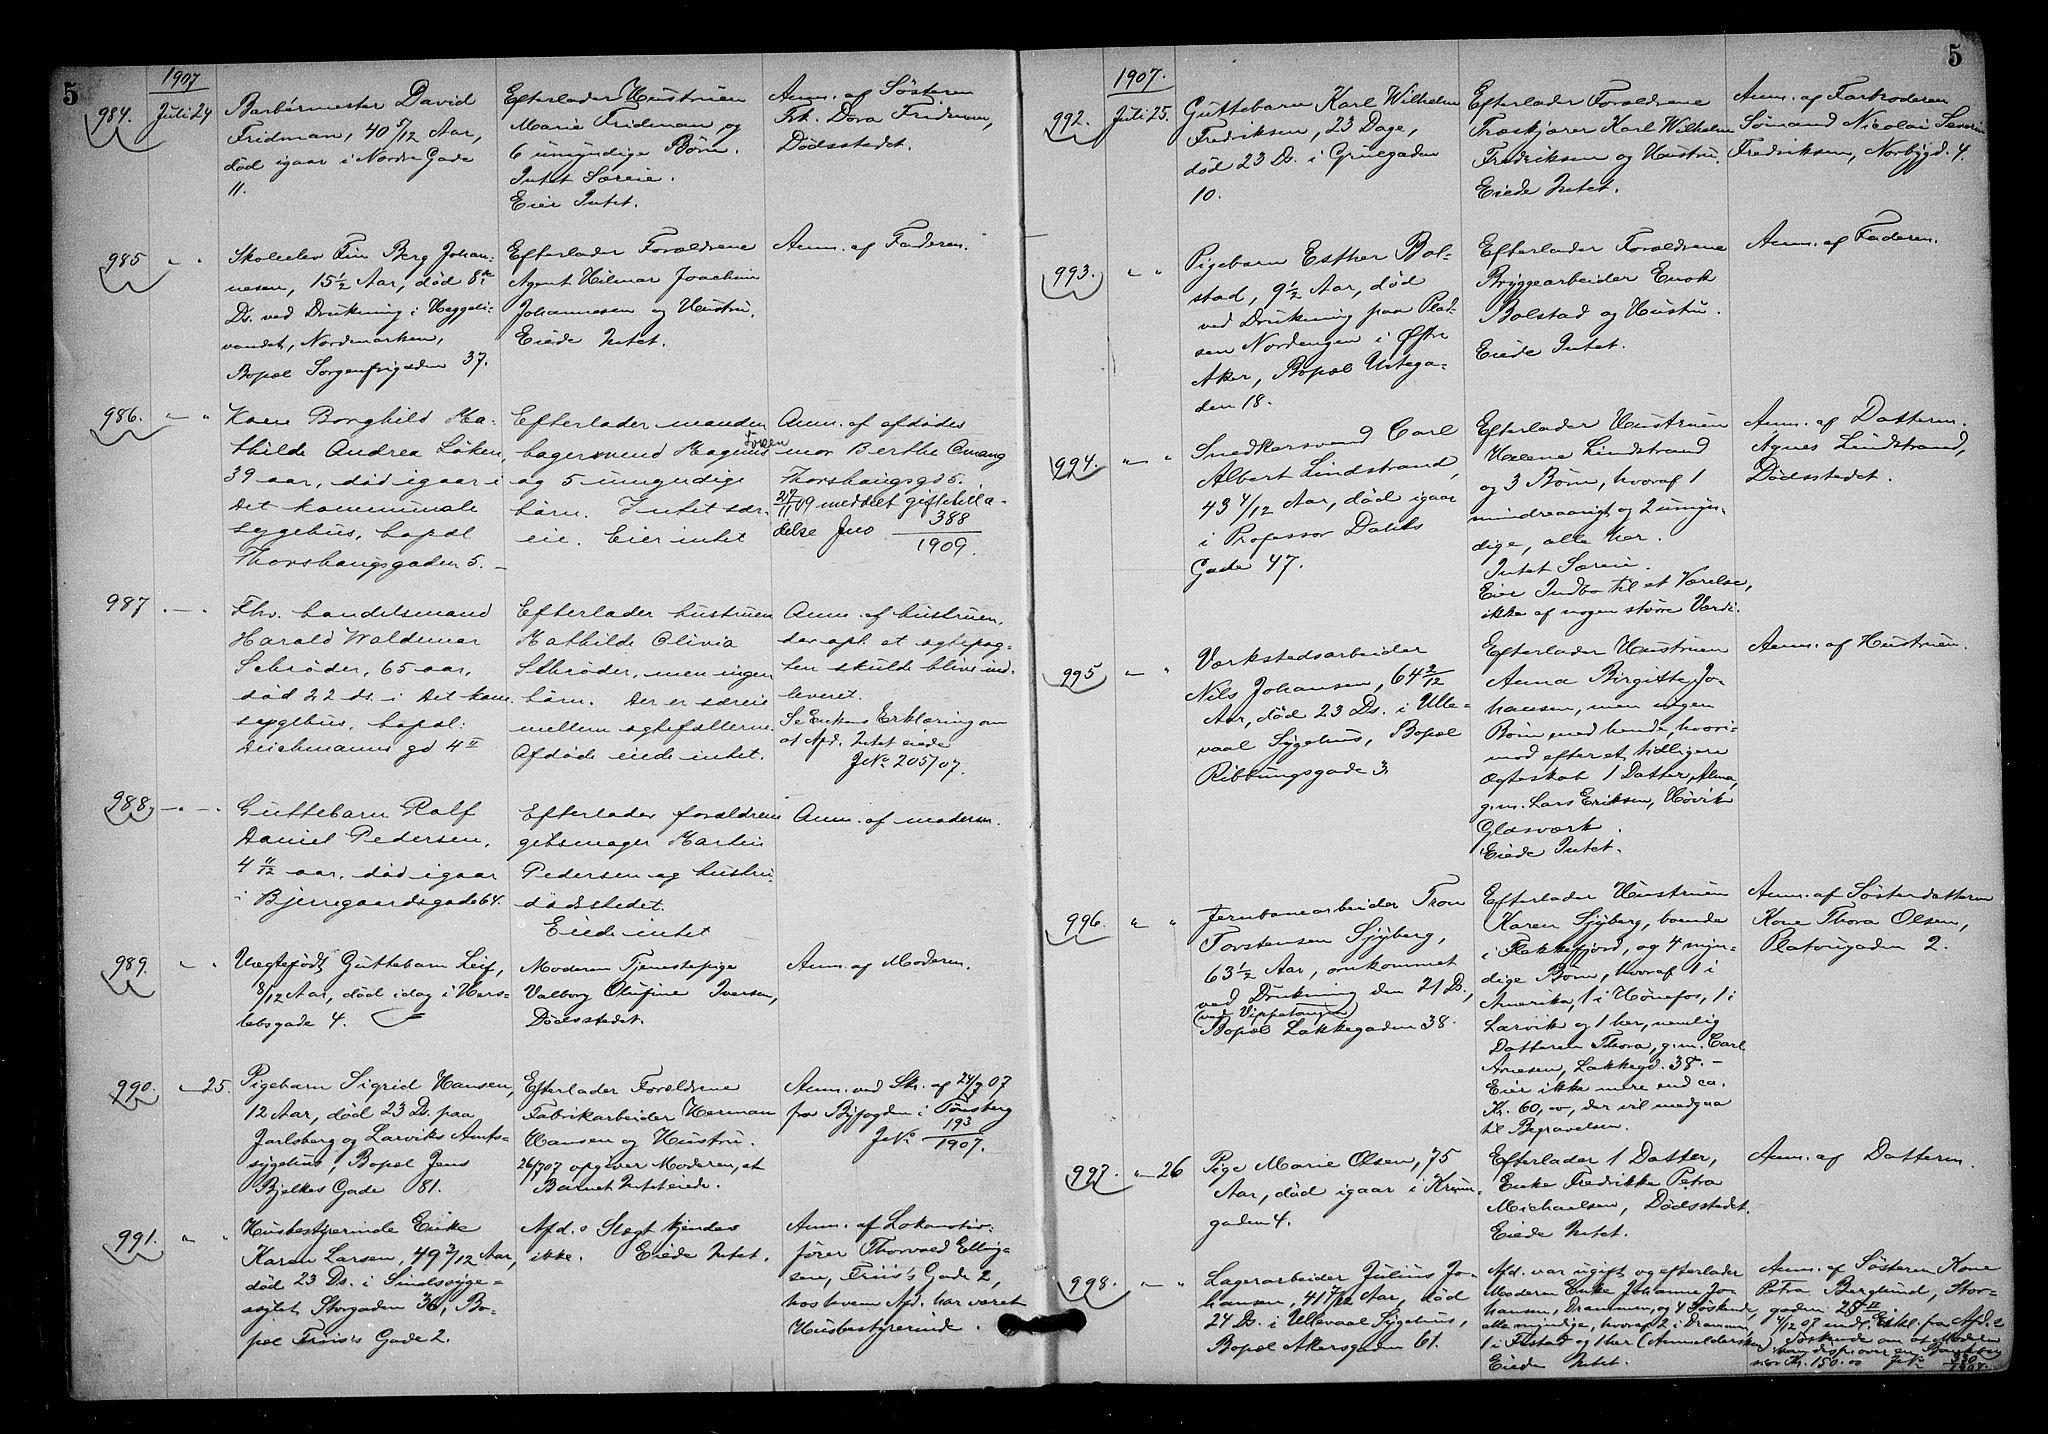 5
1907
984.
Juli 24
Barbérmester David
Fridman, 40 5/12 Aar,
død igaar i Nordre Gade
11.
Efterlader Hustruen
Marie Fridman og
6 umyndige Børn.
Intet Særeie.
Eier Intet.
Anm. af Søsteren
Frk. Dora Fridman,
Dødsstedet.
985
" "
Skoleelev Fin Berg Johan-
nesen, 15 1/2 Aar, død 8de
Ds. ved Drukning i Heggeli-
vandet, Nordmarken,
Bopæl Sorgenfrigaden 37.
Efterlader Forældrene
Agent Hilmar Joachim
Johannesen og Hustru.
Eiede Intet.
Anm. af Faderen.
986.
" "
Kone Borghild Ma-
thilde Andrea Løken,
39 aar, død igaar i
Det kommunale
sygehus, bopæl
Thorshaugsgaden 5. –
Efterlader manden
bagersvend Magnus
og 5 umyndige
børn. Intet sær-
eie. Eier intet
Anm. af afdødes
mor Berthe Omang
Thorshaugsgd 5.
27/11 09 meddelt giftetilla-
delse Jno 388
1909.
987
" –
Fhv. handelsmand
Harald Waldemar
Schrøder, 65 aar,
død 22 ds. i Det kom.
sygehus, bopæl:
Deichmanns gd 4 II
Efterlader hustruen
Mathilde Olivia
Schrøder, men ingen
børn. Der er særeie
mellem ægtefællerne.
Afdøde eiede intet.
Anm. af hustruen,
der opl. at egtepag-
ten skulde blive ind-
leveret.
Se Enkens Erklæring om
at Afd. Intet eiede
JNo 205/07.
988.
– " –
Guttebarn Ralf
Daniel Pedersen,
4 11/12 aar, død igaar
i Bjerregaardsgade 64.
Efterlader forældrene
gibsmager Martin
Pedersen og hustru
dødsstedet.
Eiede intet
Anm. af moderen.
989.
" "
Uægtefødt Guttebarn Leif,
8/12 Aar, død idag i Hers-
lebsgade 4.
Moderen Tjenestepige
Valborg Olufine Iversen,
Dødsstedet.
Anm. af Moderen.
990.
" 25.
Pigebarn Sigrid Hansen,
12 Aar, død 23 Ds. paa
Jarlsberg og Larviks Amts-
sygehus, Bopæl Jens
Bjelkes Gade 81.
Efterlader Forældrene
Fabrikarbeider Herman
Hansen og Hustru.
26/7 07 opgiver Moderen, at
Barnet Intet eiede.
Anm. ved Skr. af 24/7 07
fra Byfogden i Tønsberg
JNo 193
1907.
991.
" "
Husbestyrerinde Enke
Karen Larsen, 49 3/12 Aar,
død 23 Ds. i Sindssyge-
asylet, Storgaden 36, Bo-
pæl Friis's Gade 2.
Afd.s Slægt kjendes
ikke. Eiede Intet.
Anm. af Lokomotiv-
fører Thorvald Elling-
sen, Friis's Gade 2,
hos hvem Afd. har været
Husbestyrerinde.
5
1907.
992.
Juli 25.
Guttebarn Karl Wilhelm
Fredriksen, 23 Dage,
død 23 Ds. i Grüegaden
10.
Efterlader Forældrene
Træskjærer Karl Wilhelm
Fredriksen og Hustru.
Eiede Intet.
Anm. af Farbroderen
Sømand Nicolai Severin
Fredriksen, Norbygd. 4.
993.
" "
Pigebarn Esther Bol-
stad, 9 1/2 Aar, død
ved Drukning paa Plad-
sen Nordengen i Østre
Aker, Bopæl Urtega-
den 18.
Efterlader Forældrene
Bryggearbeider Enok
Bolstad og Hustru.
Eiede Intet.
Anm. af Faderen.
994.
" "
Snedkersvend Carl
Albert Lindstrand,
43 4/12 Aar, død igaar
i Professor Dahls
Gade 47.
Efterlader Hustruen
Helene Lindstrand
og 3 Børn, hvoraf 1
mindreaarigt og 2 umyn-
dige, alle her.
Intet Særeie.
Eier Indbo til et Værelse,
ikke af nogen større Værdi.
Anm. af Datteren
Agnes Lindstrand,
Dødsstedet.
995
" "
Værkstedsarbeider
Nils Johansen, 64 2/12
Aar, død 23 Ds. i Ulle-
vaal Sygehus, Bopæl
Ribbungsgade 3.
Efterlader Hustruen
Anna Birgitte Jo-
hansen, men ingen
Børn med hende, hvori-
mod efter et tidligere
Ægteskab 1 Datter, Alma,
g.m. Lars Eriksen, Høvik
Glasværk.
Eiede Intet.
Anm. af Hustruen.
996.
" "
Jernbanearbeider Tron
Torstensen Sjyberg,
63 1/2 Aar, omkommet
ved Drukning den 21 Ds.,
(ved Vippetangen)
Bopæl Lakkegaden 38.
Efterlader Hustruen
Karen Sjyberg, boende
i Flekkefjord, og 4 myn-
dige Børn, hvoraf 1 i
Amerika, 1 i Hønefos, 1 i
Larvik og 1 her, nemlig
Datteren Thora, g.m. Carl
Arnesen, Lakkegd. 38. –
Eier ikke mere end ca.
Kr. 60,00, der vil medgaa
til Begravelsen.
Anm. af Søsterdatteren
Kone Thora Olsen,
Platougaden 2.
997.
" 26
Pige Marie Olsen, 75
Aar, død igaar i Krum-
gaden 4.
Efterlader 1 Datter,
Enke Fredrikke Petra
Michaelsen, Dødsstedet.
Eiede Intet.
Anm. af Datteren.
998.
" "
Lagerarbeider Julius Jo-
hansen, 41 7/12 Aar, død
24 Ds. i Ullevaal Sygehus,
Bopæl Akersgaden 61.
Afd. var ugift og efterlader
Moderen Enke Johanne Jo-
hansen, Drammen, og 4 Søskende,
alle myndige, hvoraf 2 i Drammen,
1 i og 1 her (Anmeldersken)
Eiede Intet.
Anm. af Søsteren Kone
Petra Berglund, Stor-
gaden 25 II.
4/12 07 indl. Erkl. fra Afd.s
Søskende om at Moderen
kan disp. over en Bankbog
stor Kr. 150.00 JNo 330
1907.